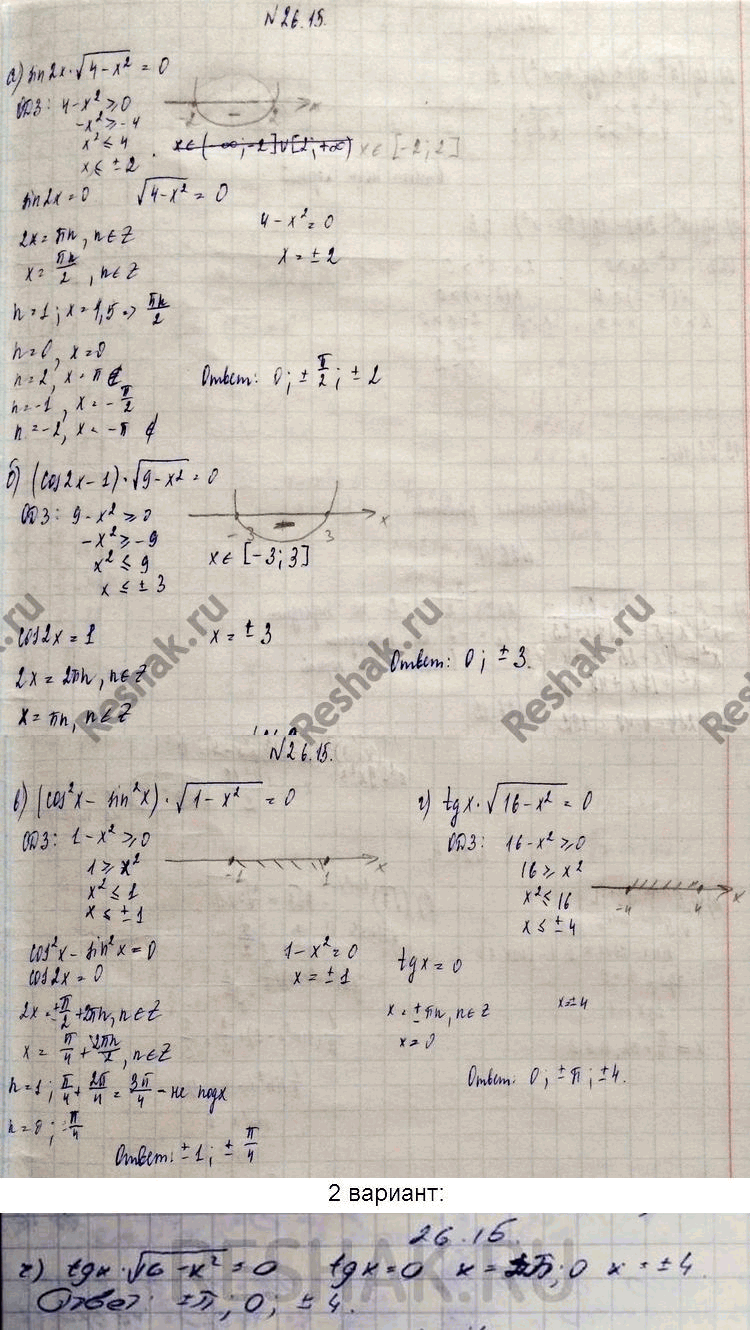 N 26.15.
а) sin2x·√(4-x²) = 0
ОДЗ: 4-x² ≥ 0
-x² ≥ -4
x² ≤ 4
x ≤ ±2
-2 - 2 x
x∈(-∞;-2]∪[2;+∞) x∈[-2;2]
sin2x=0 √(4-x²) = 0
2x = πn, n∈Z 4-x²=0
x = πn/2, n∈Z x = ±2
n=1; x=1,5 => πn/2
n=0, x=0
n=2, x=π ∉
n=-1, x = -π/2
n=-2, x = -π ∉
Ответ: 0; ±π/2; ±2
б) (cos2x-1)·√(9-x²) = 0
ОДЗ: 9-x² ≥ 0
-x² ≥ -9
x² ≤ 9
x ≤ ±3
-3 - 3 x
x∈[-3;3]
cos2x=1 x = ±3
2x = 2πn, n∈Z
x = πn, n∈Z
Ответ: 0; ±3.
N 26.15.
в) (cos²x - sin²x)·√(1-x²) = 0
ОДЗ: 1-x² ≥ 0
1 ≥ x²
x² ≤ 1
x ≤ ±1
-1 1 x
cos²x - sin²x = 0 1-x²=0
cos2x = 0 x = ±1
2x = ±π/2 + 2πn, n∈Z
x = π/4 + 2πn/2, n∈Z
n=1; π/4 + 2π/4 = 3π/4 - не подх
n=0; π/4
Ответ: ±1; ±π/4
г) tgx·√(16-x²) = 0
ОДЗ: 16-x² ≥ 0
16 ≥ x²
x² ≤ 16
x ≤ ±4
-4 4 x
tgx = 0
x = ±πn, n∈Z x=±4
x = 0
Ответ: 0; ±π; ±4.
Reshak.ru
Reshak.ru
Reshak.ru
2 вариант:
26.15.
г) tgx·√(16-x²) = 0 tgx=0 x = ±π; 0 x = ±4.
Ответ: ±π; 0; ±4.
RESHAK.RU